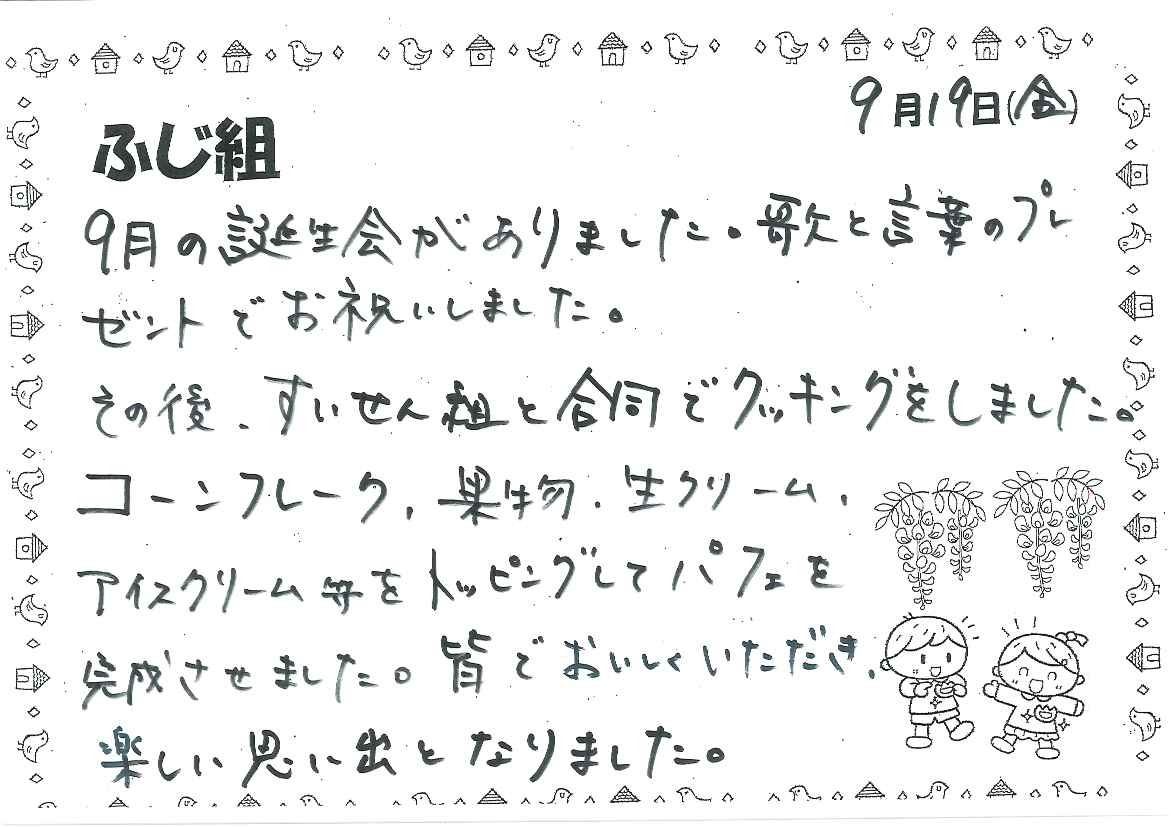 9月19日(金)
ふじ組
9月の誕生会がありました。歌と言葉のプレ
ゼントでお祝いしました。
その後、すいせん組と合同でクッキングをしました。
コーンフレーク、果物、生クリーム、
アイスクリーム等をトッピングしてパフェを
完成させました。皆でおいしくいただき、
楽しい思い出となりました。